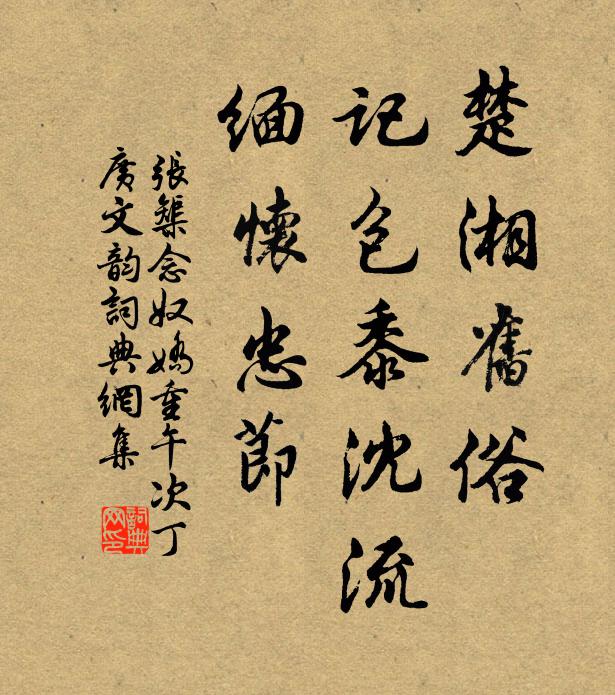 楚湘舊俗
記包黍沈流
緬懷忠節
張榘念奴嬌重午次丁
廣文韵詞典網集
詞典网印